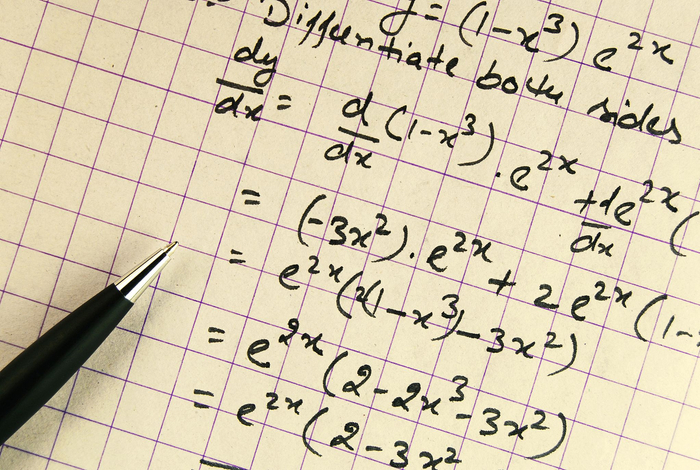 y = (1-x³) e²ˣ
Differentiate both sides
dy/dx = d/dx (1-x³) . e²ˣ + de²ˣ/dx (
= (-3x²) . e²ˣ + 2e²ˣ (1-
= e²ˣ (2(1-x³) - 3x²)
= e²ˣ (2 - 2x³ - 3x²)
= e²ˣ (2 - 3x²